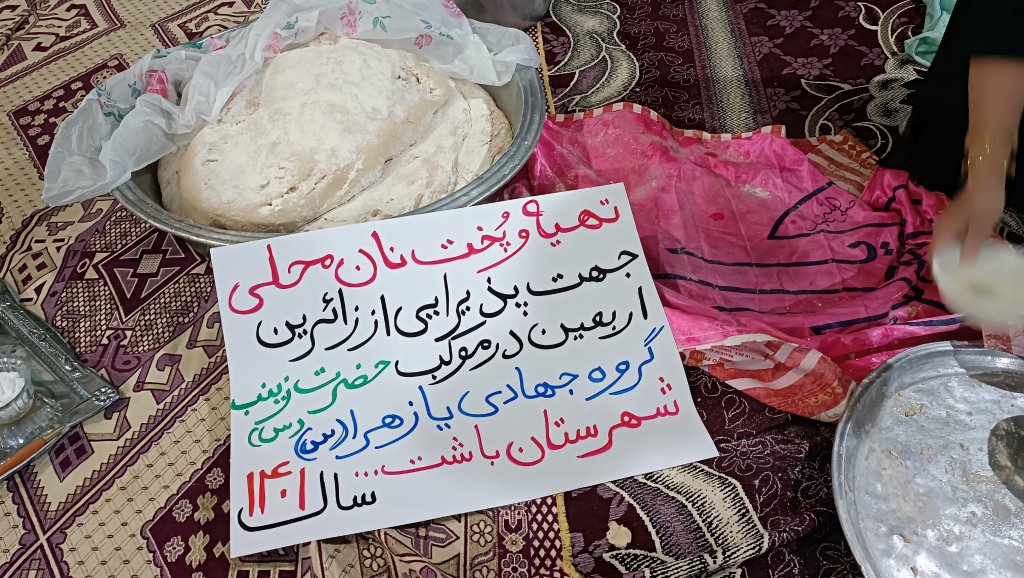 تهیه و پخت نان محلی
جهت پذیرایی از زائرین
اربعین در موکب حضرت زینب (س)
گروه جهادی یا زهرا (س)
شهرستان باشت...
سال ۱۴۰۱